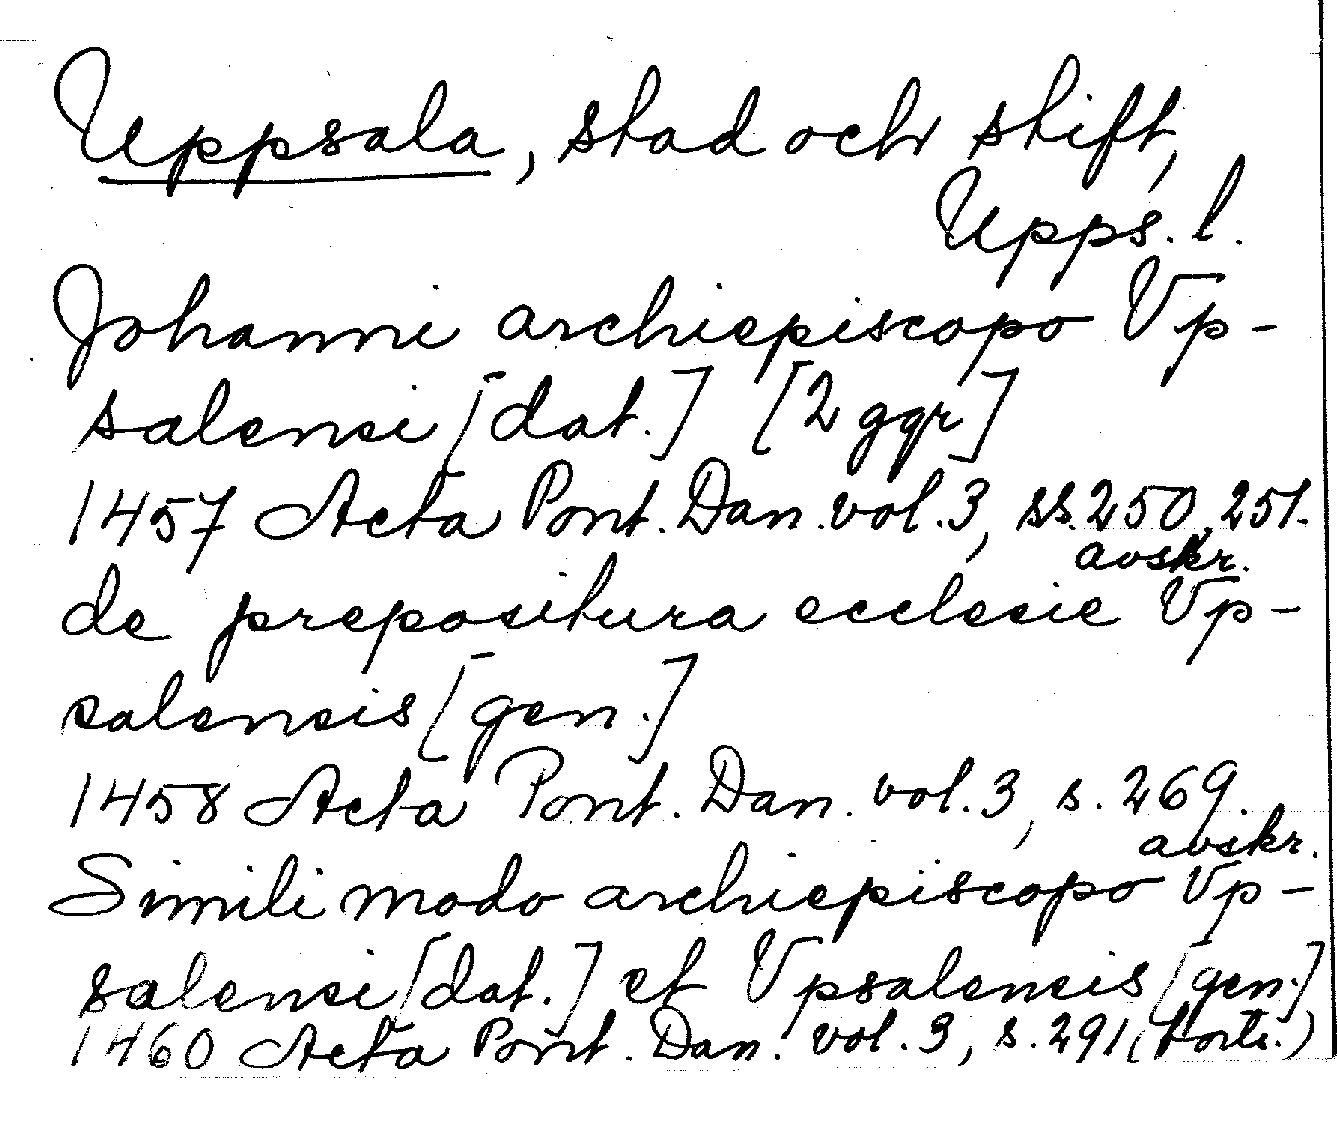 Uppsala, stad och stift,
Upps. l.
Johanni archiepiscopo Vp-
salensi [dat.] [2 ggr]
1457 Acta Pont. Dan. vol. 3, ss. 250, 251.
avskr.
de prepositura ecclesie Vp-
salensis [gen.]
1458 Acta Pont. Dan. vol. 3, s. 269.
avskr.
Simili modo archiepiscopo Vp-
salensi [dat.] et Vpsalensis [gen.]
1460 Acta Pont. Dan. vol. 3, s. 291 (forts.)